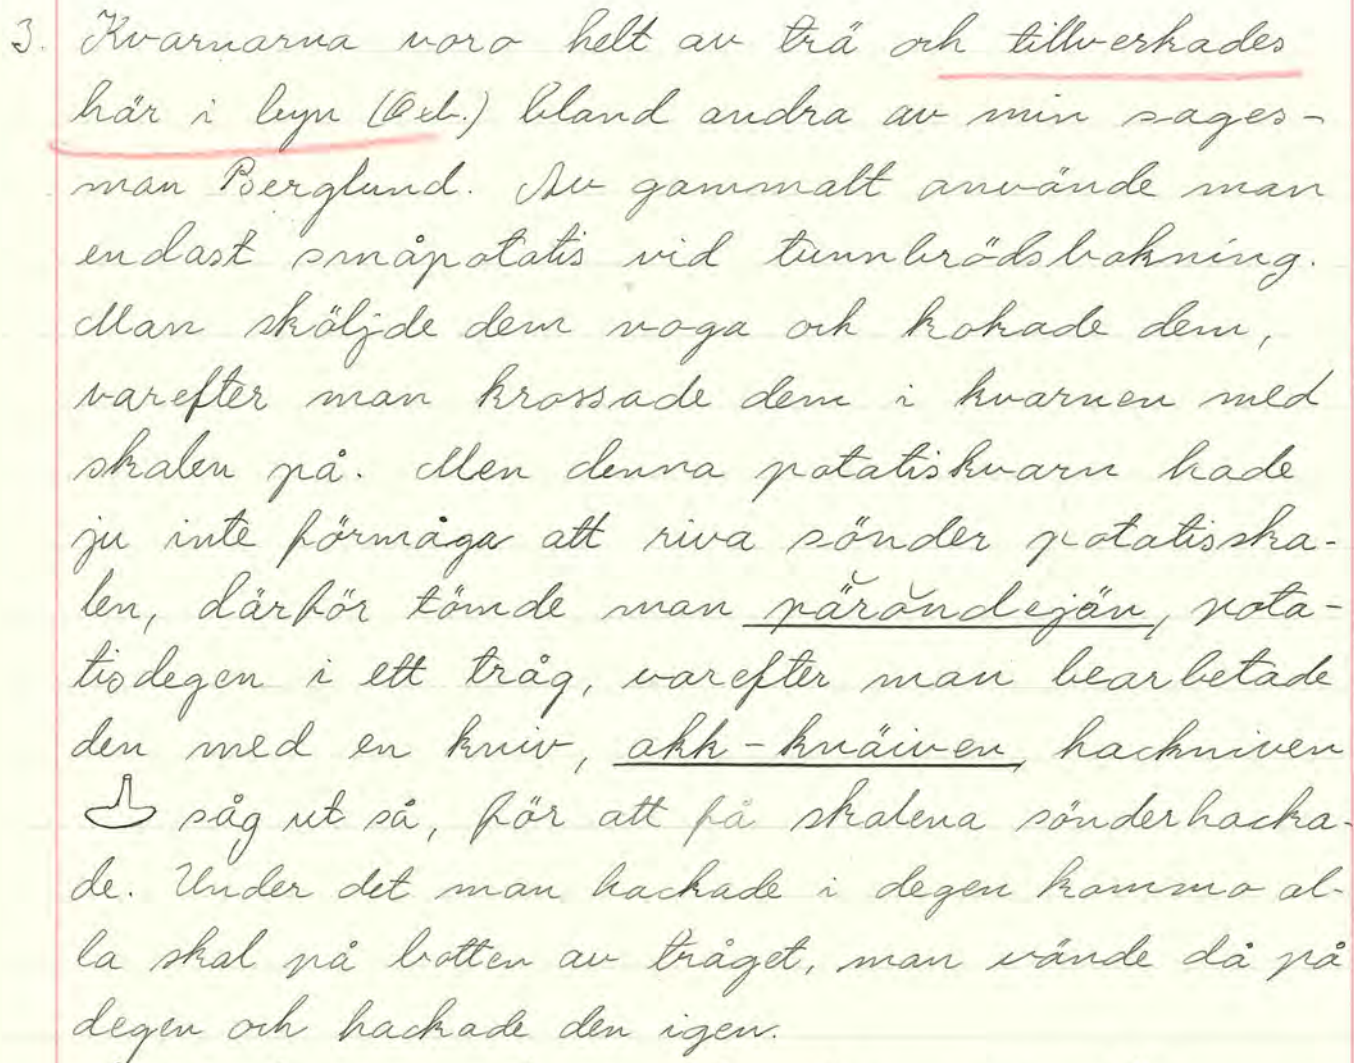 3. Kvarnarna voro helt av trä och tillverkades
här i byn (Öxb.) bland andra av min sages-
man Berglund. Av gammalt använde man
endast småpotatis vid tunnbrödsbakning.
Man sköljde dem noga och kokade dem,
varefter man krossade dem i kvarnen med
skalen på. Men denna potatiskvarn hade
ju inte förmåga att riva sönder potatisska-
len, därför tömde man päröndejän, pota-
tisdegen i ett tråg, varefter man bearbetade
den med en kniv, akk-knäiven, hackniven
såg ut så, för att få skalena sönderhacka-
de. Under det man hackade i degen kommo al-
la skal på botten av tråget, man vände då på
degen och hackade den igen.